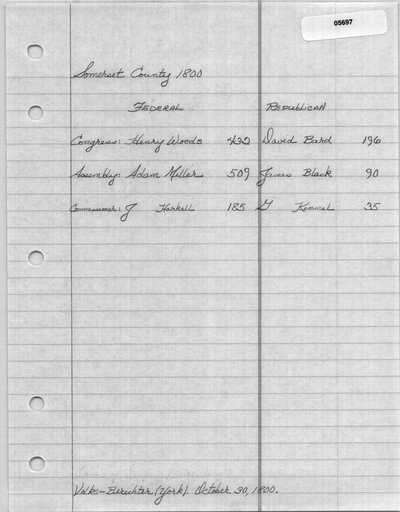 05697
Somerset County 1800
FEDERAL REPUBLICAN
Congress: Henry Woods 432 David Bard 196
Assembly: Adam Miller 509 James Black 90
Commissioner: J Harkell 185 G Kimmel 35
Volks-Berichter (York). October 30, 1800.